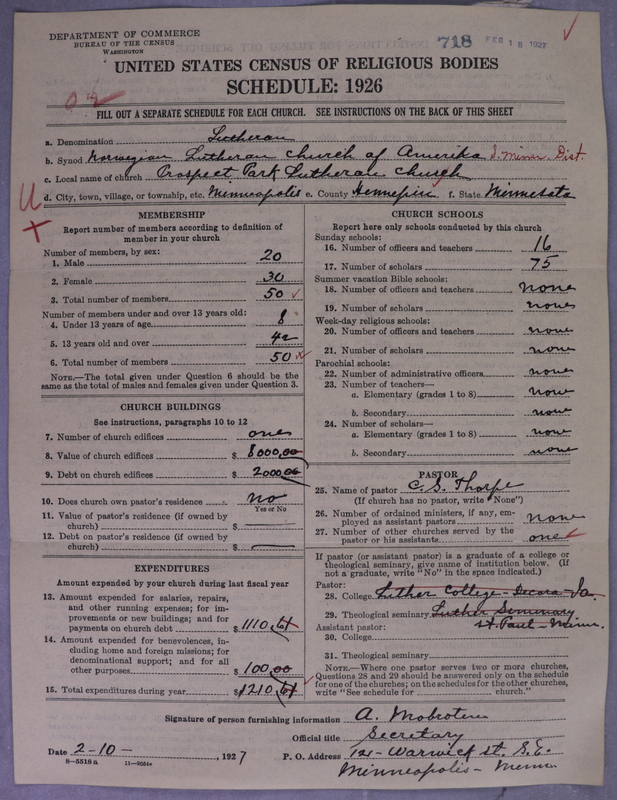 DEPARTMENT OF COMMERCE
BUREAU OF THE CENSUS
WASHINGTON
718 FEB 18 1927
UNITED STATES CENSUS OF RELIGIOUS BODIES
SCHEDULE: 1926
FILL OUT A SEPARATE SCHEDULE FOR EACH CHURCH. SEE INSTRUCTIONS ON THE BACK OF THIS SHEET
a. Denomination Lutheran
b. Synod Norwegian Lutheran Church of Amerika S. Minn. Dist.
c. Local name of church Prospect Park Lutheran Church
d. City, town, village, or township, etc. Minneapolis e. County Hennepin f. State Minnesota
MEMBERSHIP
Report number of members according to definition of
member in your church
Number of members, by sex:
1. Male 20
2. Female 30
3. Total number of members 50
Number of members under and over 13 years old:
4. Under 13 years of age 8
5. 13 years old and over 42
6. Total number of members 50
NOTE.—The total given under Question 6 should be the
same as the total of males and females given under Question 3.
CHURCH BUILDINGS
See instructions, paragraphs 10 to 12
7. Number of church edifices one
8. Value of church edifices $ 8000,00
9. Debt on church edifices $ 2000,00
10. Does church own pastor's residence No
Yes or No
11. Value of pastor's residence (if owned by
church) $
12. Debt on pastor's residence (if owned by
church) $
EXPENDITURES
Amount expended by your church during last fiscal year
13. Amount expended for salaries, repairs,
and other running expenses; for im-
provements or new buildings; and for
payments on church debt $ 1110,61
14. Amount expended for benevolences, in-
cluding home and foreign missions; for
denominational support; and for all
other purposes $ 100,00
15. Total expenditures during year $ 1210,61
CHURCH SCHOOLS
Report here only schools conducted by this church
Sunday schools:
16. Number of officers and teachers 16
17. Number of scholars 75
Summer vacation Bible schools:
18. Number of officers and teachers none
19. Number of scholars none
Week-day religious schools:
20. Number of officers and teachers none
21. Number of scholars none
Parochial schools:
22. Number of administrative officers none
23. Number of teachers—
a. Elementary (grades 1 to 8) none
b. Secondary none
24. Number of scholars—
a. Elementary (grades 1 to 8) none
b. Secondary none
PASTOR
25. Name of pastor C. S. Thorpe
(If church has no pastor, write "None")
26. Number of ordained ministers, if any, em-
ployed as assistant pastors none
27. Number of other churches served by the
pastor or his assistants one
If pastor (or assistant pastor) is a graduate of a college or
theological seminary, give name of institution below. (If
not a graduate, write "No" in the space indicated.)
Pastor:
28. College Luther College - Decora - Ia.
29. Theological seminary Luther Seminary
Assistant pastor: St. Paul - Minn.
30. College
31. Theological seminary
NOTE.—Where one pastor serves two or more churches,
Questions 28 and 29 should be answered only on the schedule
for one of the churches; on the schedules for the other churches,
write "See schedule for church."
Signature of person furnishing information A.
Official title Secretary
Date 2-10-, 1927 P. O. Address 121 - Warwick St. S.E.
8-5518a 11-9554 Minneapolis - Minn